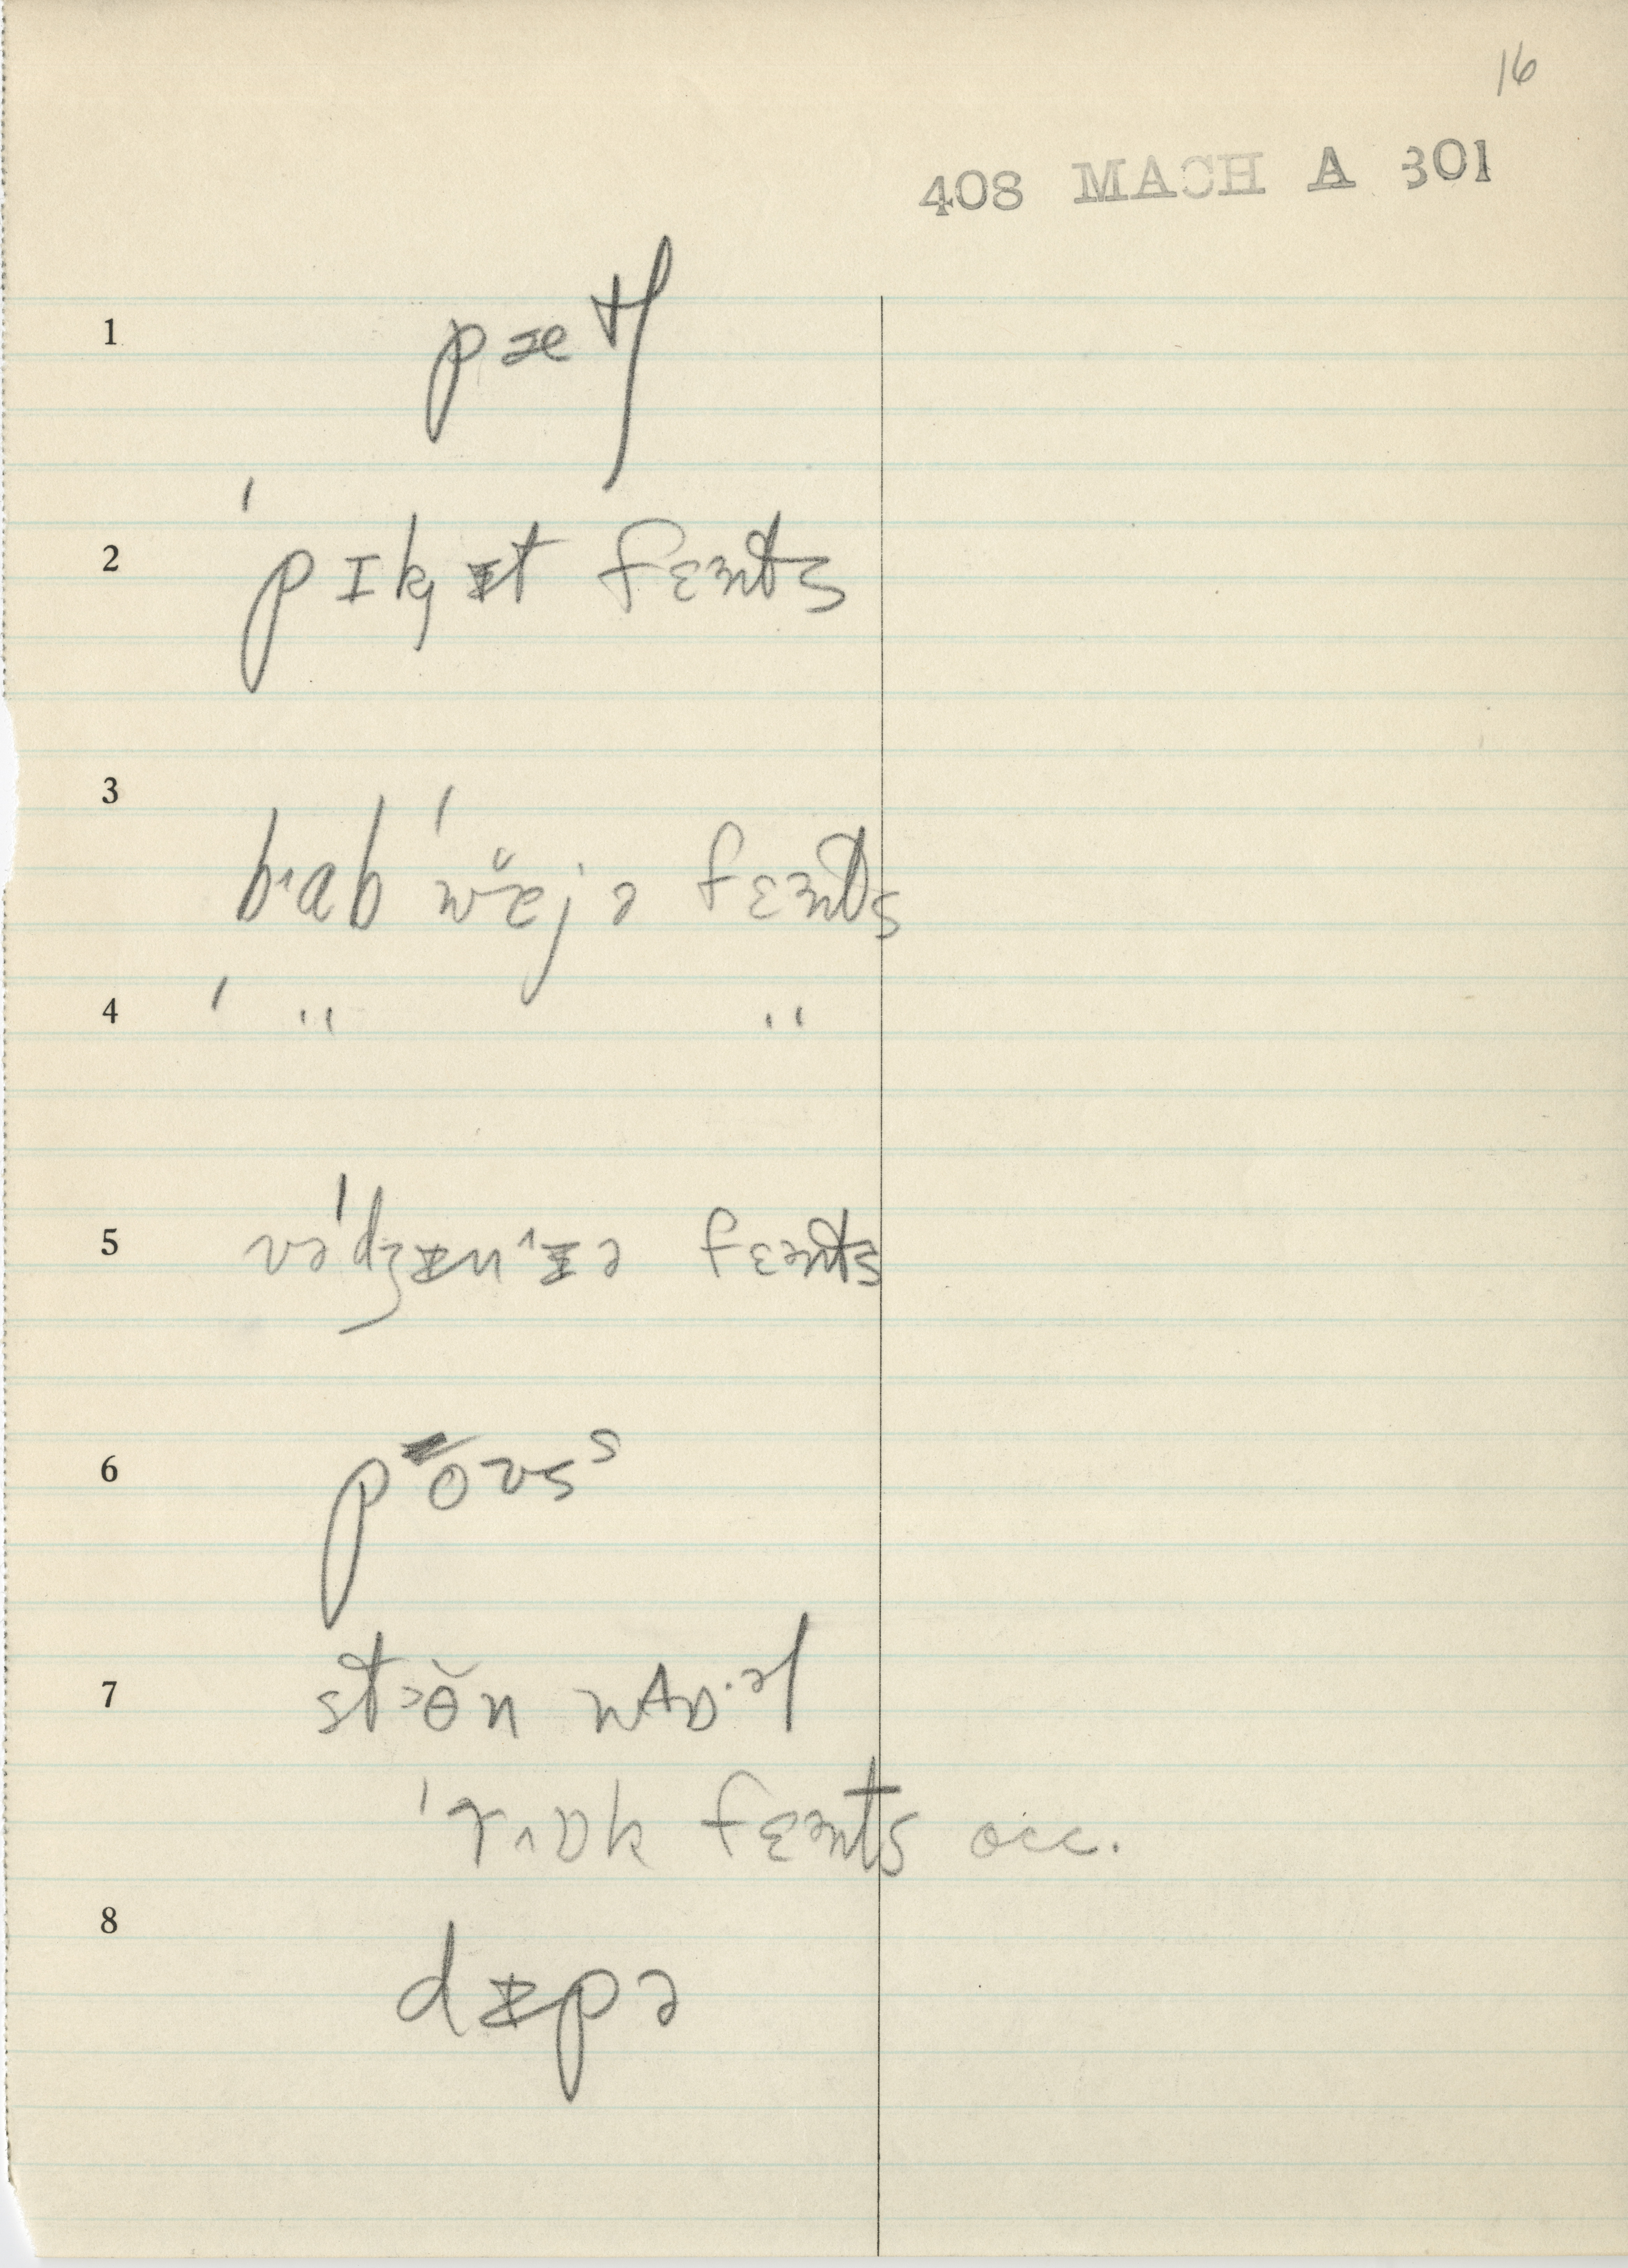 16
408 MACH A 301
1 pætʃ
2 ˈpɪkᵻt fɛənts
3 bˑab ˈwæ̆jə fɛənts
4 ˈ " "
5 vəˈdʒᵻnˑᵻə fɛənts
6 po̅vsˢ
7 st>ɵ̆n wʌɒ·əl
ˈrˑɒk fɛənts occ.
8 dᵻpə